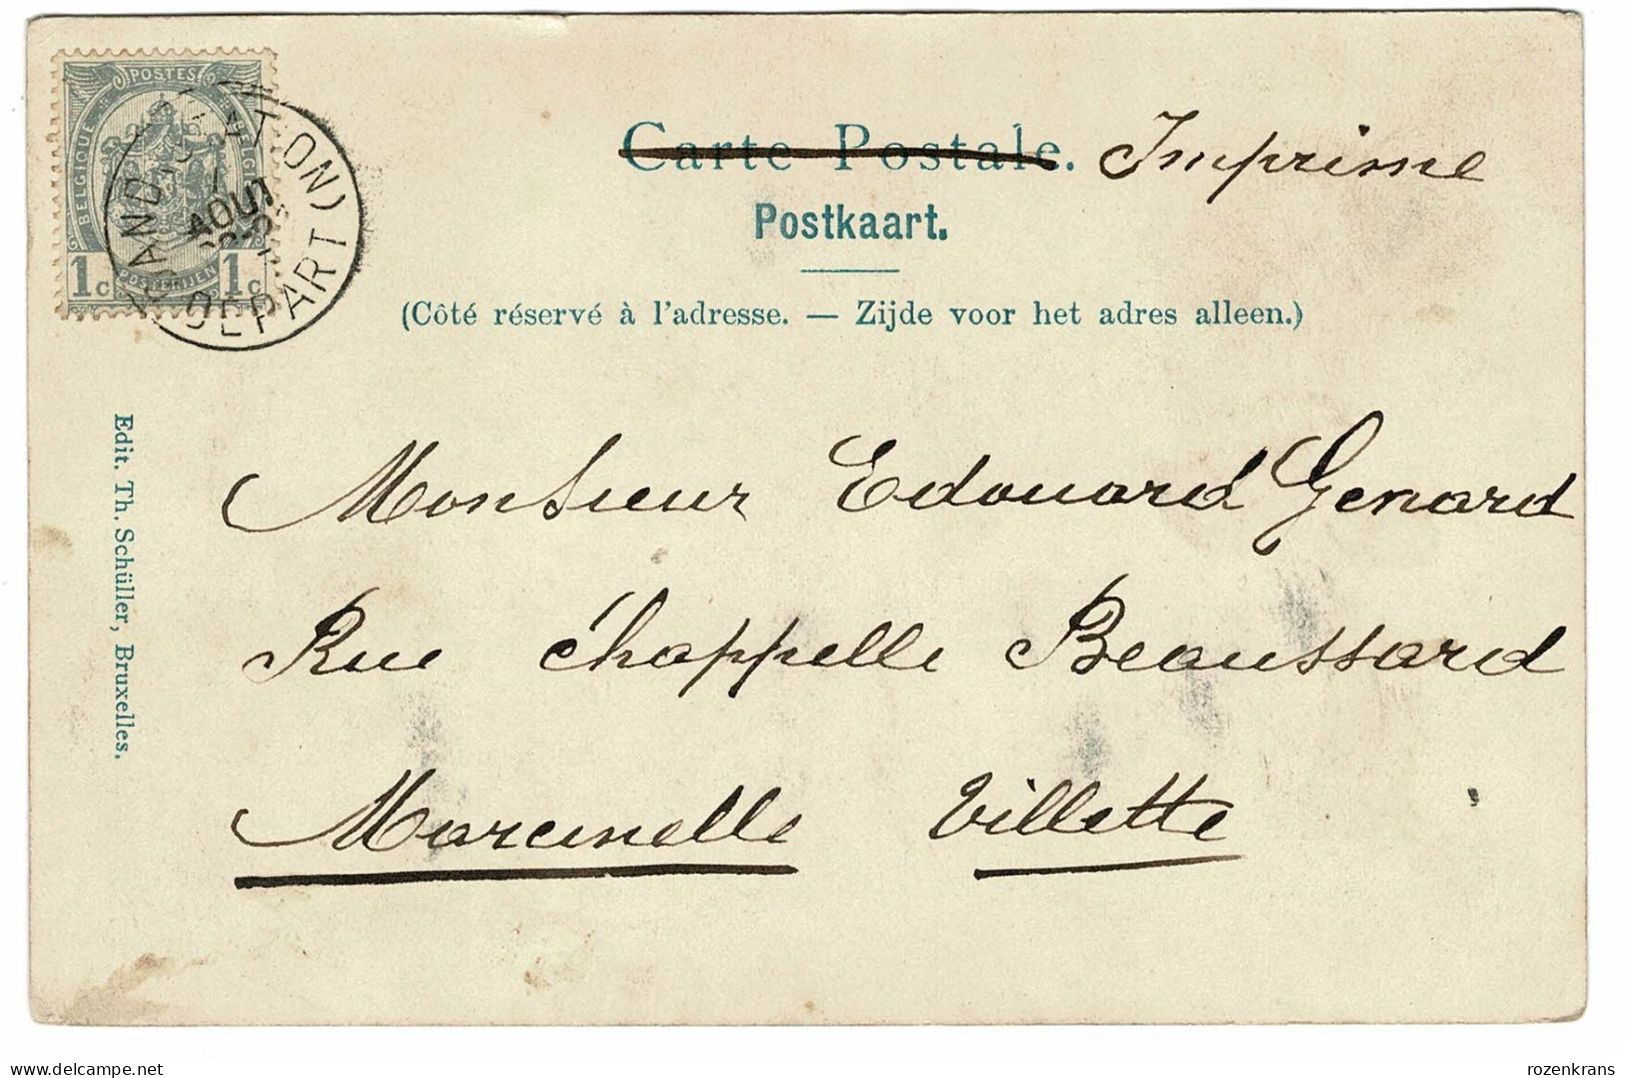 POSTES
BELGIQUE
BELGIË
1c 1c
POSTERIJEN
GAND (STATION)
7
AOUT
DEPART
Carte Postale. Imprime
Postkaart.
(Côté réservé à l'adresse. — Zijde voor het adres alleen.)
Edit. Th. Schüller, Bruxelles.
Monsieur Edouard Genard
Rue Chappelle Beaussard
Marcinelle Villette
rozenkrans
delcampe.net